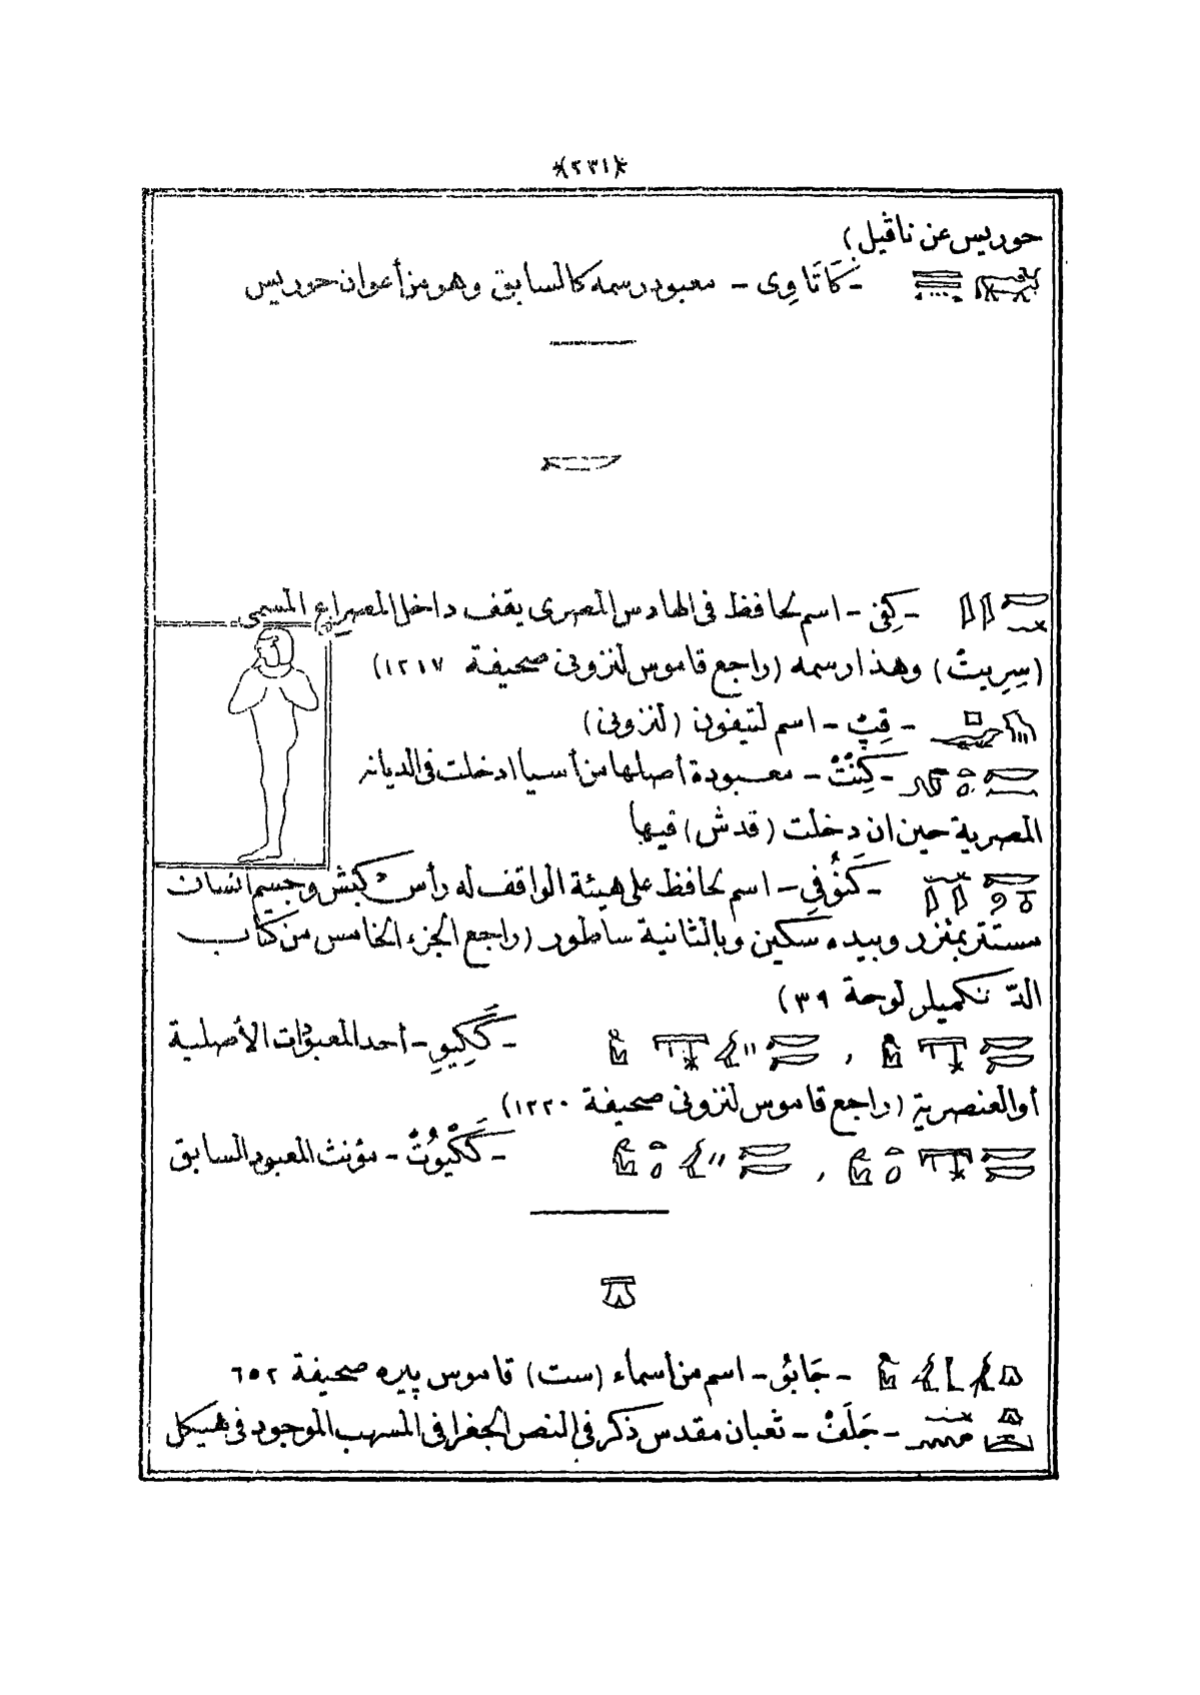 (٢٣١)
حوريس عن ناڤيل)
- كَاتَاوِى - معبود رسمه كالسابق وهو من أعوان حوريس
- كِفِى - اسم لحافظ فى الهادس المصرى يقف داخل المصراع المسمى
(سِرِيتْ) وهذا رسمه (راجع قاموس لنزونى صحيفة ١٢١٧)
- قِبْ - اسم لتيفون (لنزونى)
- كِنْتْ - معبودة أصلها من أسيا ادخلت فى الديانه
المصرية حين ان دخلت (قدش) فيها
- كَنُوفِى - اسم لحافظ على هيئة الواقف له رأس كبش وجسم انسان
مستتر بمئزر وبيده سكين وبالثانية ساطور (راجع الجزء الخامس من كتاب
الدّ نكميلر لوحة ٣٩)
، - كَكِيوِ - أحد المعبودات الأصلية
أو العنصرية (راجع قاموس لنزونى صحيفة ١٢٢٠)
، - كَكْيُوتْ - مؤنث المعبود السابق
- جَابُو - اسم من أسماء (ست) قاموس پيره صحيفة ٦٥٢
- جَلَفْ - ثعبان مقدس ذكر فى النص الجغرافى المسهب الموجود فى هيكل